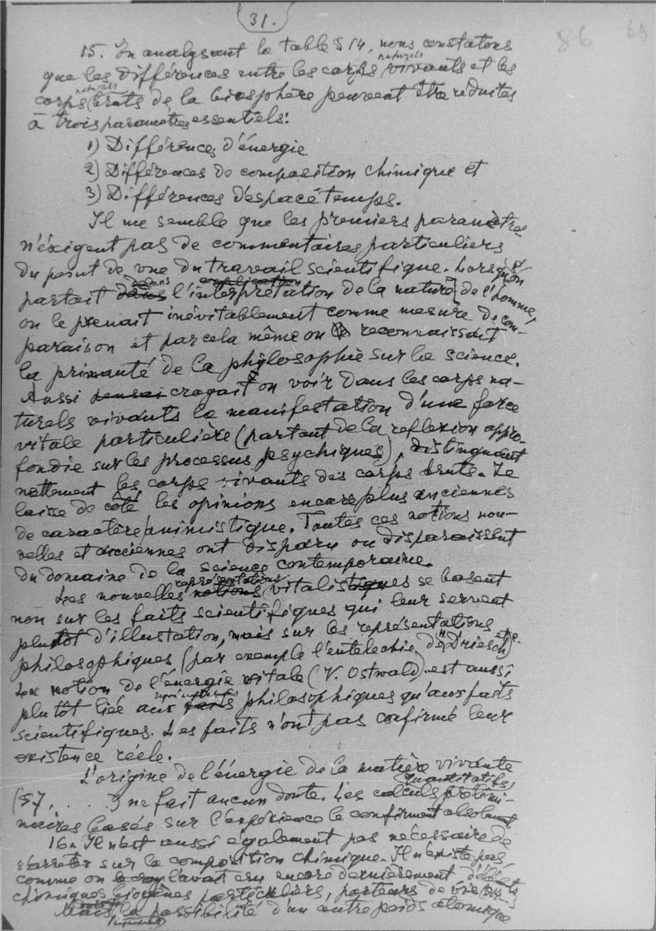 31.
86
15. En analysant la table § 14, nous constatons
que les différences entre les corps naturels vivants et les
corps naturels bruts de la biosphère peuvent être réduites
à trois paramètres essentiels:
1) Différences d'énergie
2) Différences de composition chimique et
3) Différences d'espace temps.
Il me semble que les premiers paramètres
n'éxigent pas de commentaires particuliers
du point de vue du travail scientifique. Lorsqu'on
partait dans l'interprétation de la nature de l'homme,
on le prenait inévitablement comme mesure de com-
paraison et par cela même on reconnaissait
la primauté de la phylosophie sur la science.
Aussi croyait on voir dans les corps na-
turels vivants la manifestation d'une force
vitale particulière (partant de la reflexion appro-
fondie sur les processus psychiques), distinguant
nettement les corps vivants des corps bruts. Je
laisse de côté les opinions encore plus anciennes
de caractère animistique. Toutes ces notions nou-
velles et anciennes ont disparu ou disparaissent
du domaine de la science contemporaine.
Les nouvelles représentations vitalistes se basent
non sur les faits scientifiques qui leur servent
plutôt d'illustation, mais sur les représentations
philosophiques (par exemple l'entelechie de Driesch) etc.
La notion de l'énergie vitale (V. Ostwald) est aussi
plutôt liée aux représentations philosophiques qu'aux faits
scientifiques. Les faits n'ont pas confirmé leur
existence réele.
L'origine de l'énergie de la matière vivante
(§ 7 . . . . ) ne fait aucun doute. Les calculs quantitatifs prélimi-
naires basés sur l'expérience le confirment
16. Il n'est aussi également pas nécessaire de
s'arreter sur la composition chimique. Il n'existe pas,
comme on l'avait cru encore dernièrement d'éléments
chimiques biogènes particuliers, porteurs de vie
Mais la possibilité d'un autre poids atomique